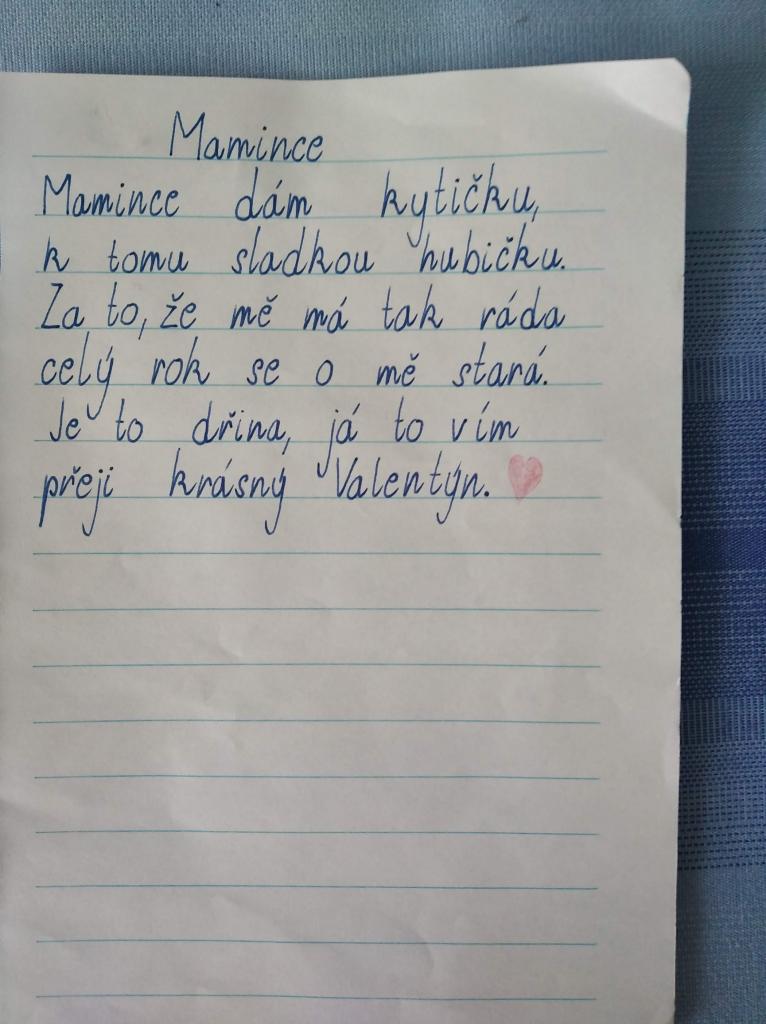 Mamince
Mamince dám kytičku,
k tomu sladkou hubičku.
Za to, že mě má tak ráda
celý rok se o mě stará.
Je to dřina, já to vím
přeji krásný Valentýn.